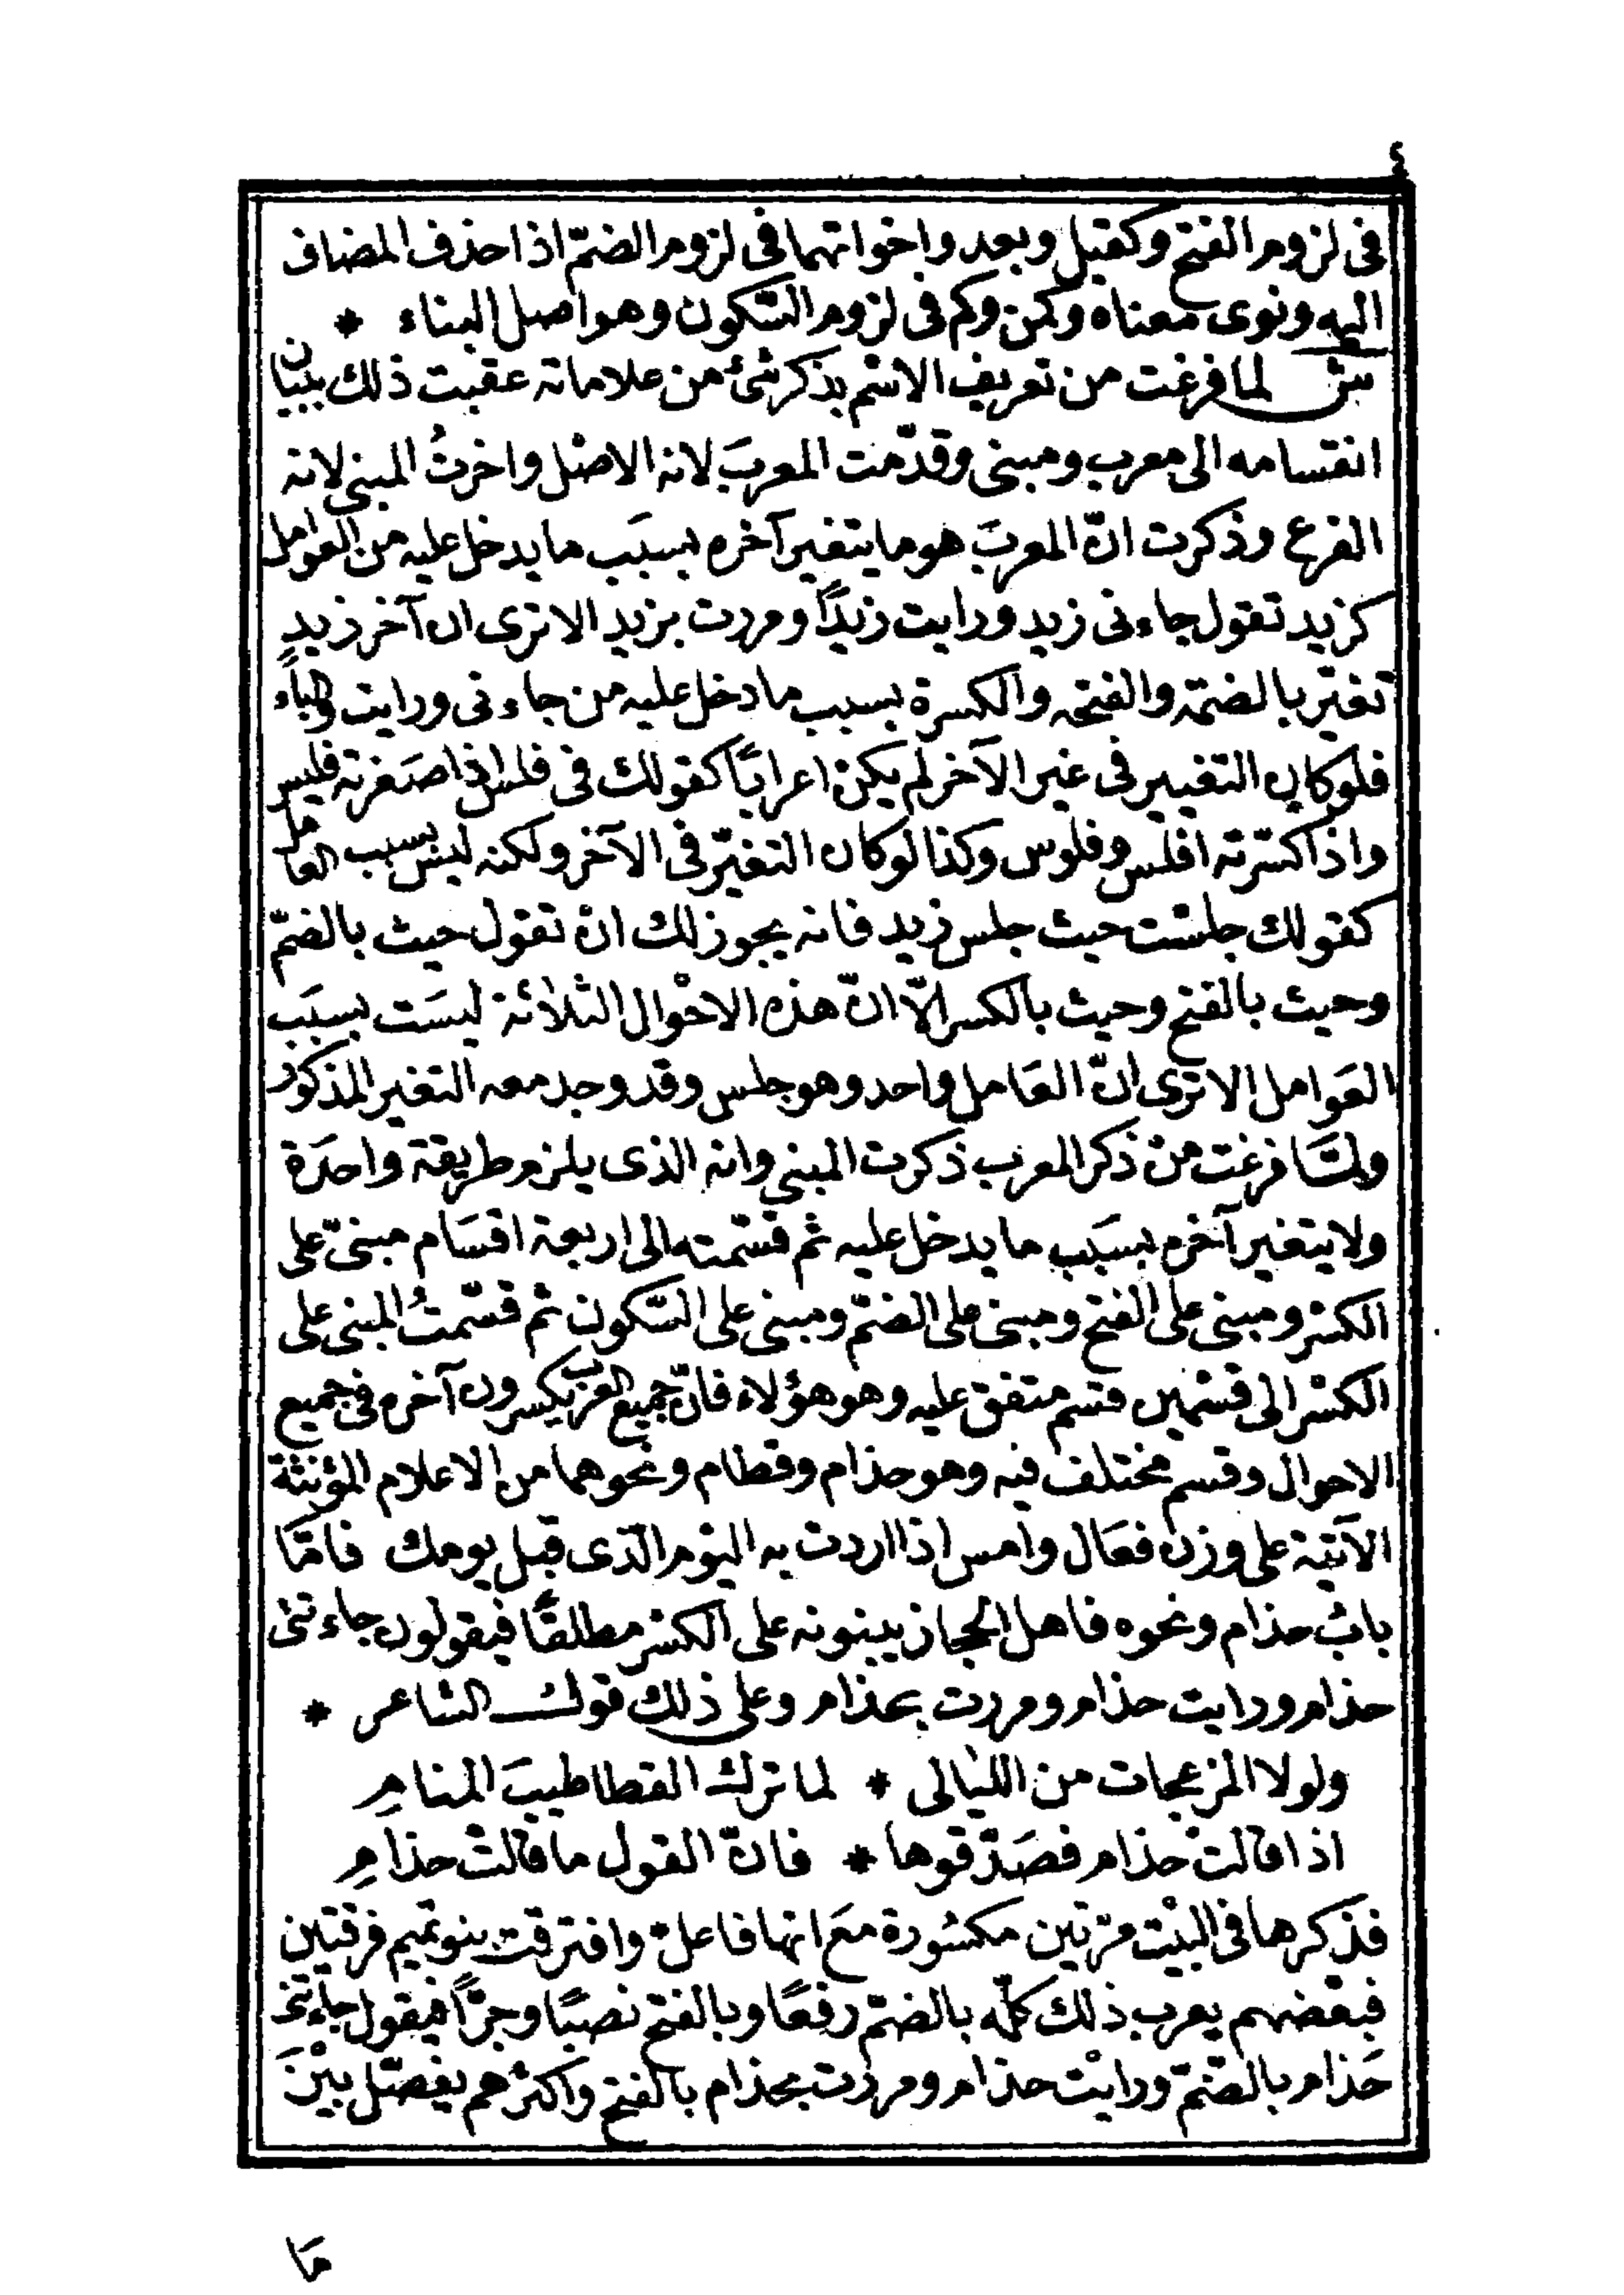 ٤
فى لزوم الفتح وكقبل وبعد واخواتهما فى لزوم الضمّ اذا حذف المضاف
اليه ونوى معناه وكمن وكم فى لزوم السّكون وهو اصل البناء *
ش لما فرغت من تعريف الاسْم بذكر شئ من علاماته عقبت ذلك ببيان
انقسامه الى معرب ومبنى وقدّمت المعربَ لانه الاصْل واخرتُ المبنى لانه
الفرع وذكرت انّ المعربَ هو ما يتغير آخره بسبَب ما يدخل عليه من العوامل
كزيد تقول جاءنى زيد ورايت زيدًا ومررت بزيد الا ترى ان آخر زيدٍ
تغيّر بالضمّة والفتحه والكسرة بسبب ما دخل عليه من جاءنى ورايت والباء
فلو كان التغيير فى غير الآخر لم يكنْ اعرابًا كقولك فى فلس اذا صَغرته فليس
واذا كسّرته افلس وفلوس وكذا لو كان التغيّر فى الآخر ولكنه ليسَ بسبب العامل
كقولك جلسْت حيث جلس زيد فانه يجوز لك انْ تقول حيث بالضمّ
وحيث بالفتح وحيث بالكسر الّا انّ هذه الاحْوال الثلاثة ليسَت بسبَب
العَوامل الا ترى انّ العَامل واحد وهو جلس وقد وجد معه التغير المذكور
ولمّا فرغت منْ ذكر المعرب ذكرت المبنى وانه الذى يلزم طريقة واحدَة
ولا يتغير آخره بسبَب ما يدخل عليه ثم قسّمته الى اربعة اقسَام مبنىّ على
الكسْر ومبنى على الفتح ومبنى على الضمّ ومبنى على السّكون ثم قسّمتُ المبنى على
الكسْر الى قسْمين قسم متفق عليه وهو هؤلاء فانّ جميع العرب يكسرون آخره فى جميع
الاحوال وقسم مختلف فيه وهو حذام وقطام ونحوهما من الاعلام المؤنثة
الآتية على وزن فعَال وامس اذا اردت به اليوْم الّذى قبل يومك فامّا
بابُ حذام ونحوه فاهل الحجاز يبنونه على الكسْر مطلقًا فيقولون جاءتنى
حذام ورايت حذام ومررت بحذام وعلى ذلك قول الشاعر *
ولولا المزعجات من الليَالى * لما ترك القطا طيبَ المنامِ
اذا قالتْ حذام فصَدّقوها * فانّ القول ما قالتْ حذامِ
فذكرها فى البيْت مرّتين مكسُورة معَ انها فاعلٌ وافترقت بنو تميم فرقتين
فبعْضهم يعرب ذلك كلّه بالضمّ رفعًا وبالفتح نصبًا وجرًّا فيقول جاءتنى
حَذام بالضّمّ ورايْت حذام ومررْت بحذام بالفتح واكثرهم يفصّل بيْنَ
مَا